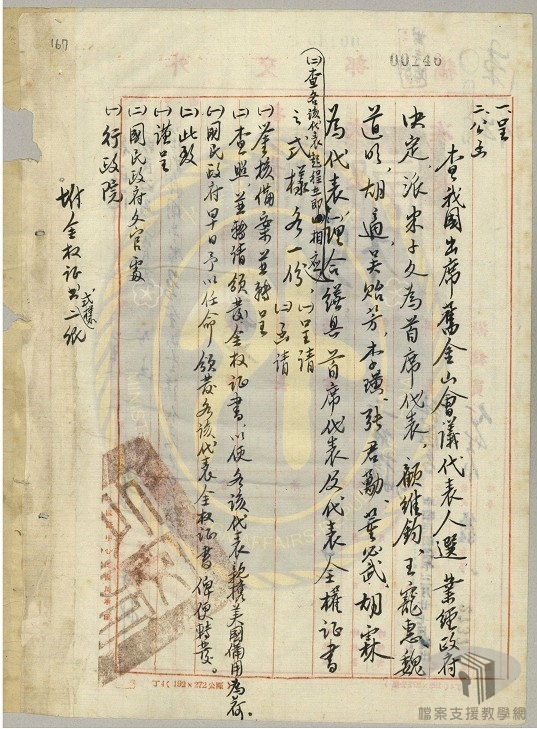 167
00146
一、呈
二、公函
查我國出席舊金山會議代表人選，業經政府
決定，派宋子文為首席代表，顧維鈞、王寵惠、魏
道明、胡適、吳貽芳、李璜、張君勱、董必武、胡霖
為代表，理合繕具首席代表及代表全權証書
之式樣各一份，㈠呈請 ㈡函請
㈡查各該代表起程在即，相應
㈠鑒核備案並轉呈
㈡查照，並轉請領發全权証書，以便各該代表親攜美國備用為荷。
㈠國民政府早日予以任命，領發各該代表全权証書俾便轉發。
㈡此致
㈠謹呈
㈡國民政府文官處
㈠行政院
附全权証書式樣二紙
丁4(192×272公厘)
AFFAIRS
檔案支援教學網